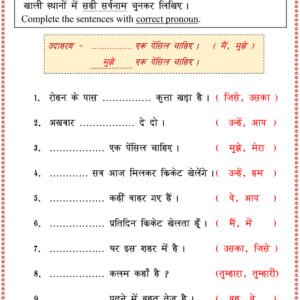 खाली स्थानों में सही सर्वनाम चुनकर लिखिए ।
Complete the sentences with correct pronoun.
उदाहरण - ............... एक पेंसिल चाहिए । ( मैं, मुझे )
मुझे एक पेंसिल चाहिए ।
1. रोहन के पास .............. कुत्ता खड़ा है । ( जिसे, उसका )
2. अखबार ................ दे दो । ( उन्हें, आप )
3. ................ एक पेंसिल चाहिए । ( मुझे, मेरा )
4. ............. सब आज मिलकर क्रिकेट खेलेंगे । ( उन्हें, हम )
5. ................ कहीं बाहर गए हैं । ( वे, आप )
6. ................ प्रतिदिन क्रिकेट खेलता हूँ । ( मैं, में )
7. ................ घर इस शहर में है । ( उसका, जिसे )
8. ................ कलम कहाँ है ? ( तुम्हारा, तुम्हारी )
9. ................ पढ़ने में बहुत तेज है ।